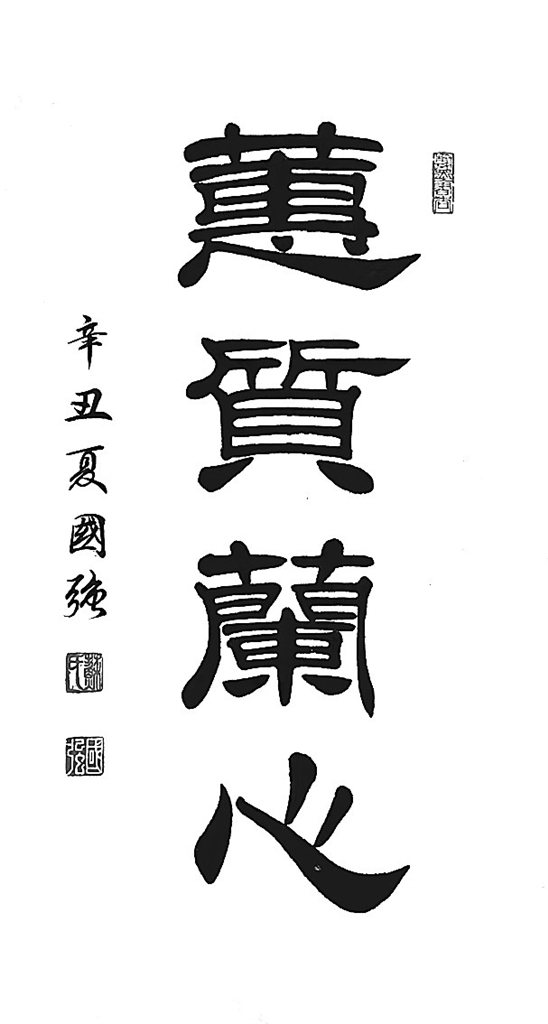 蕙質蘭心
辛丑夏國強